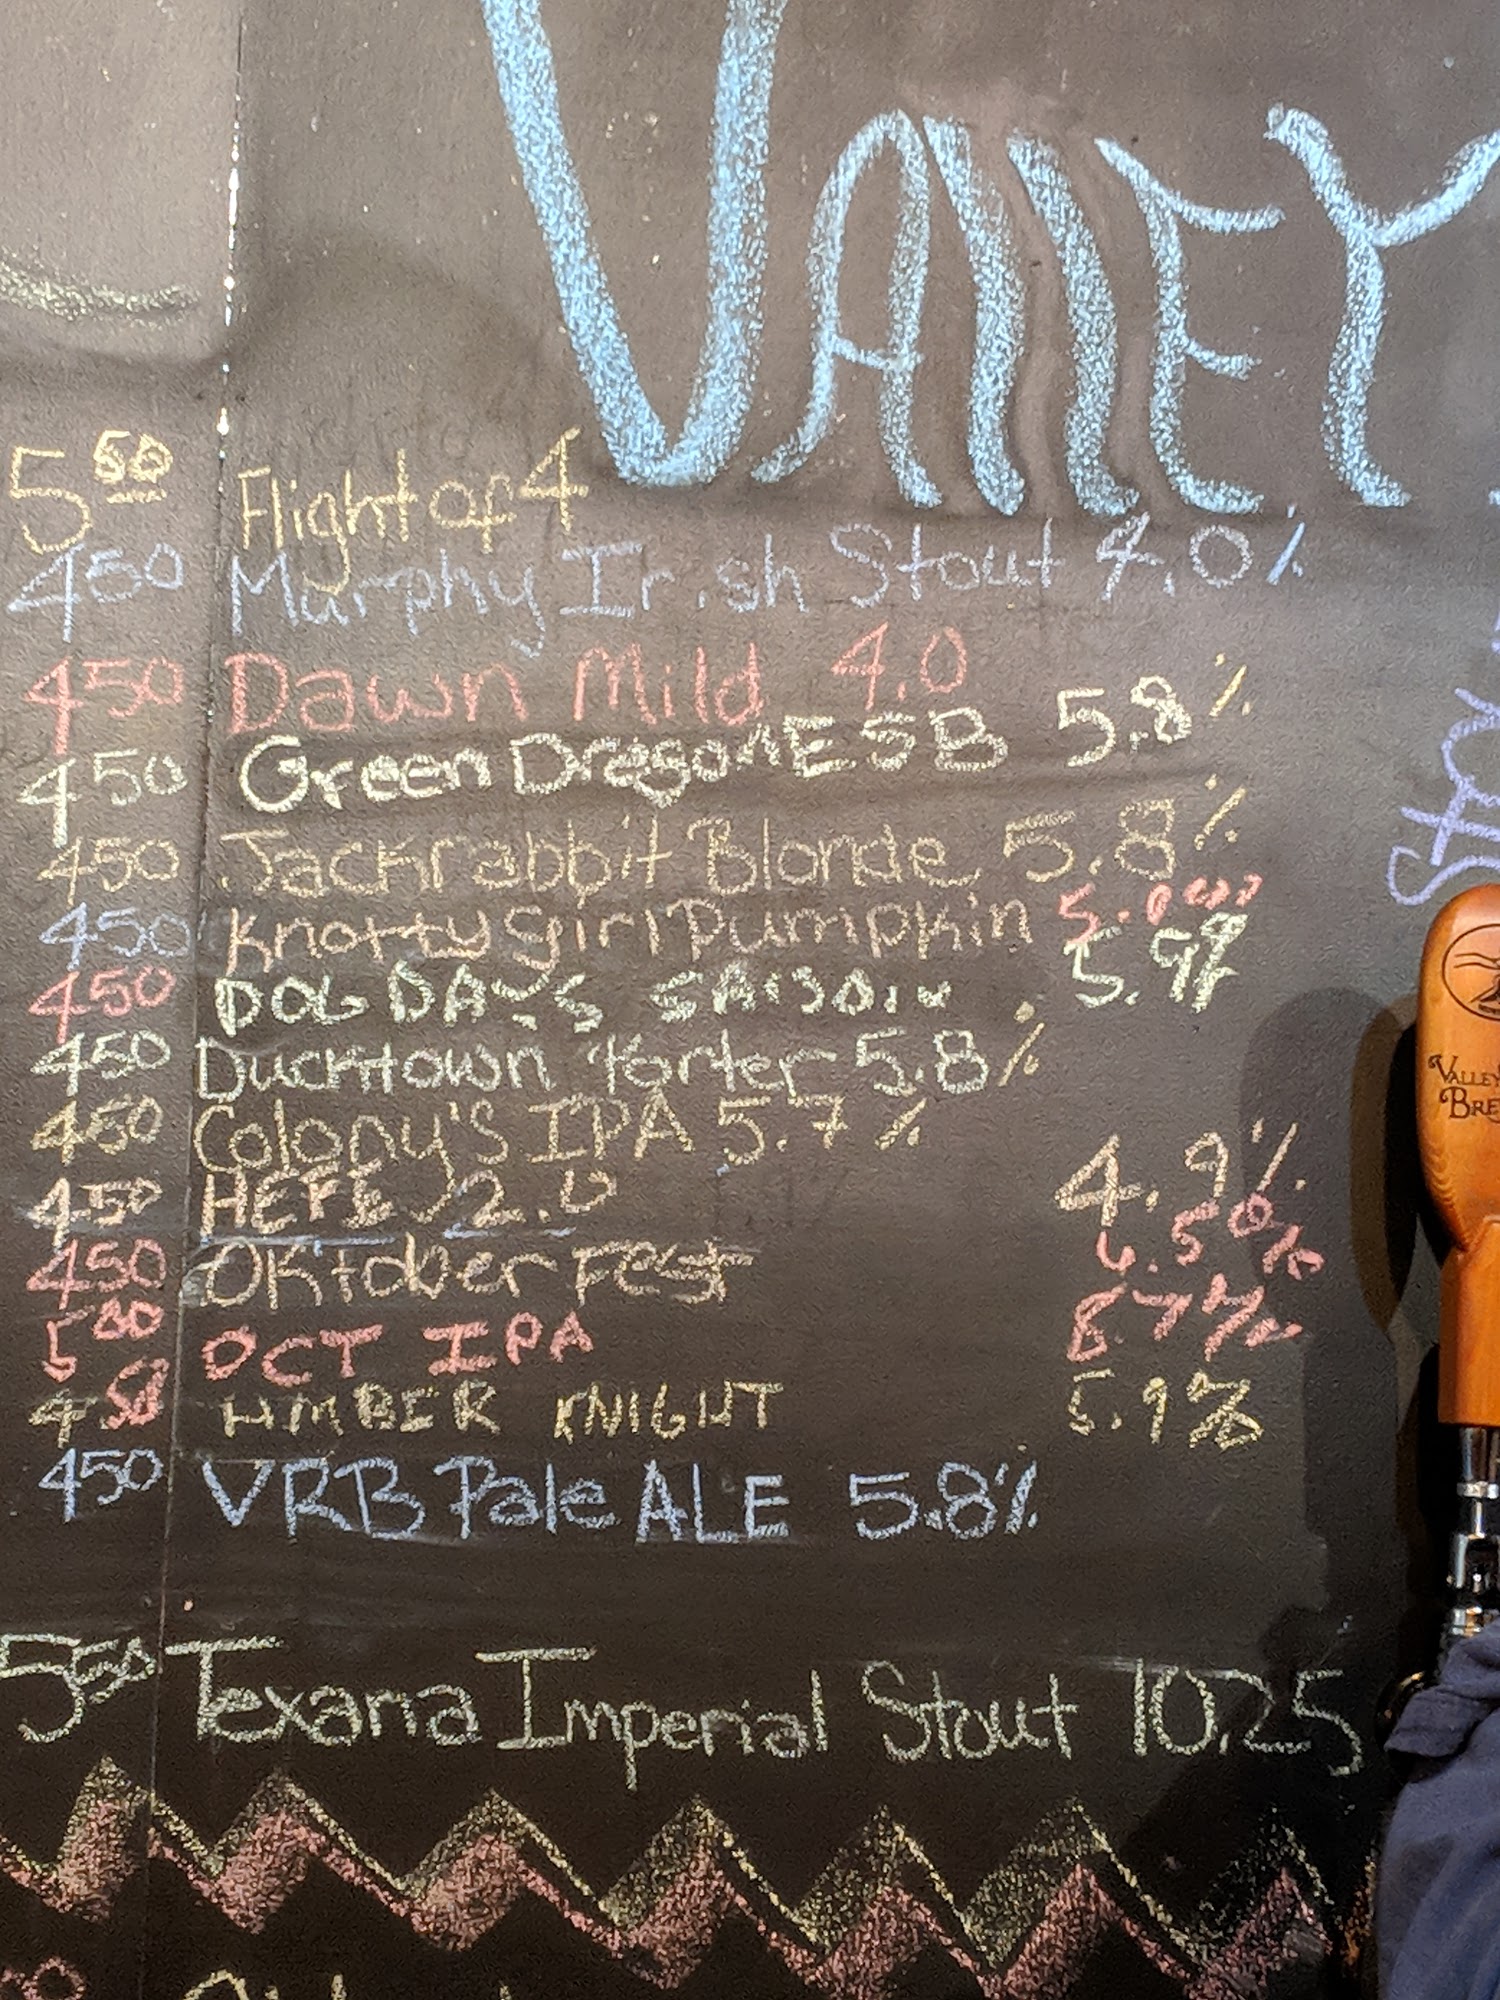 VAllEY
5 50 Flight of 4
450 Murphy Irish Stout 4.0%
450 Dawn Mild 4.0
450 Green Dragon ESB 5.8%
450 Jackrabbit Blonde 5.8%
450 Knotty girl Pumpkin
450 DOG DAYS SAISON 5.9%
450 Ducktown Porter 5.8%
450 Colony's IPA 5.7%
450 HEFE 2.0 4.9%
450 Oktober Fest
5 OCT IPA
450 AMBER KNIGHT 5.9%
450 VRB Pale ALE 5.8%
550 Texana Imperial Stout 10.25
VALLEY